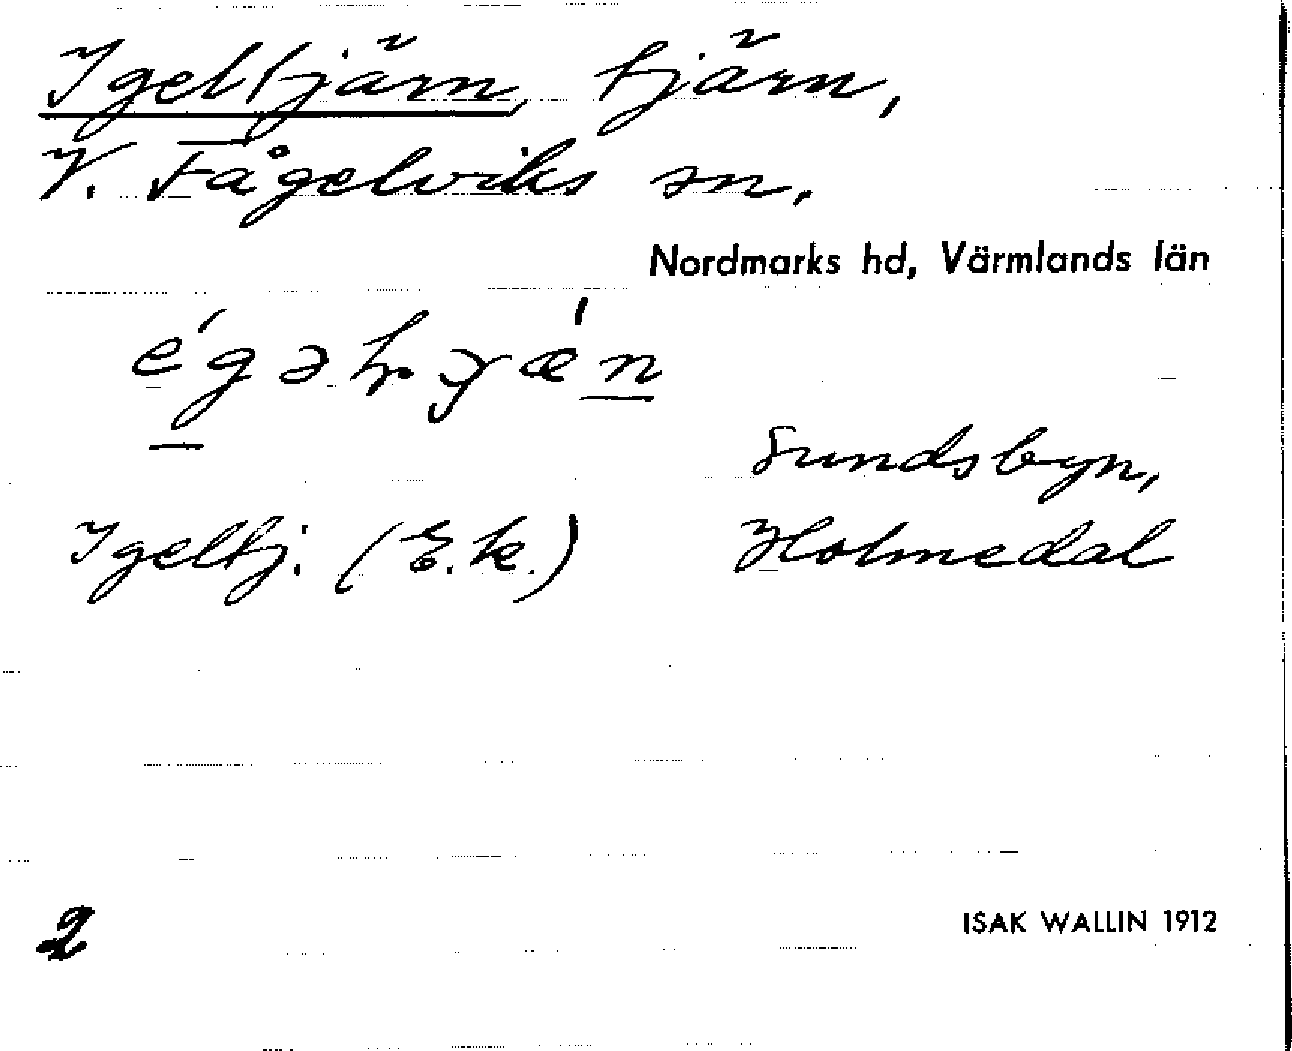 Igeltjärn, tjärn,
V. Fågelviks sn.
Nordmarks hd, Värmlands län
Sundsbyn,
Igeltj. (E.k.) Holmedal
2 ISAK WALLIN 1912